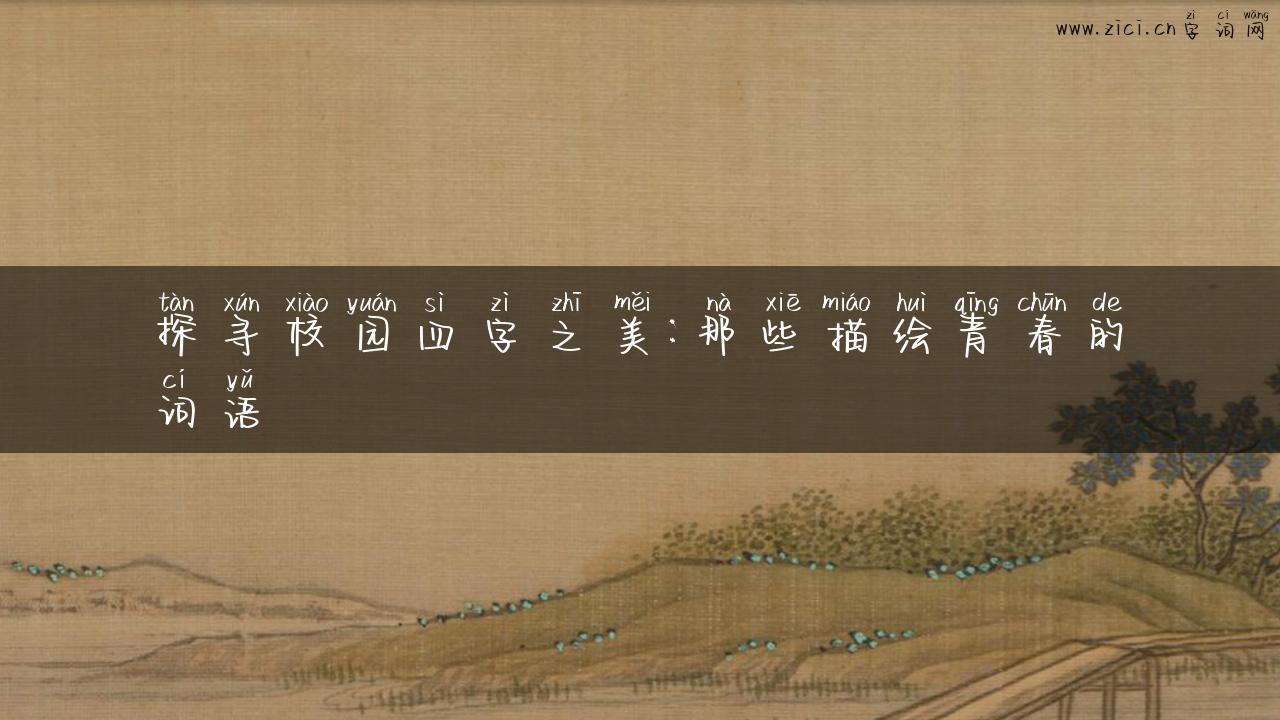 zì cí wǎng
www.zici.cn字词网
tàn xún xiào yuán sì zì zhī měi nà xiē miáo huì qīng chūn de
探寻校园四字之美：那些描绘青春的
cí yǔ
词语